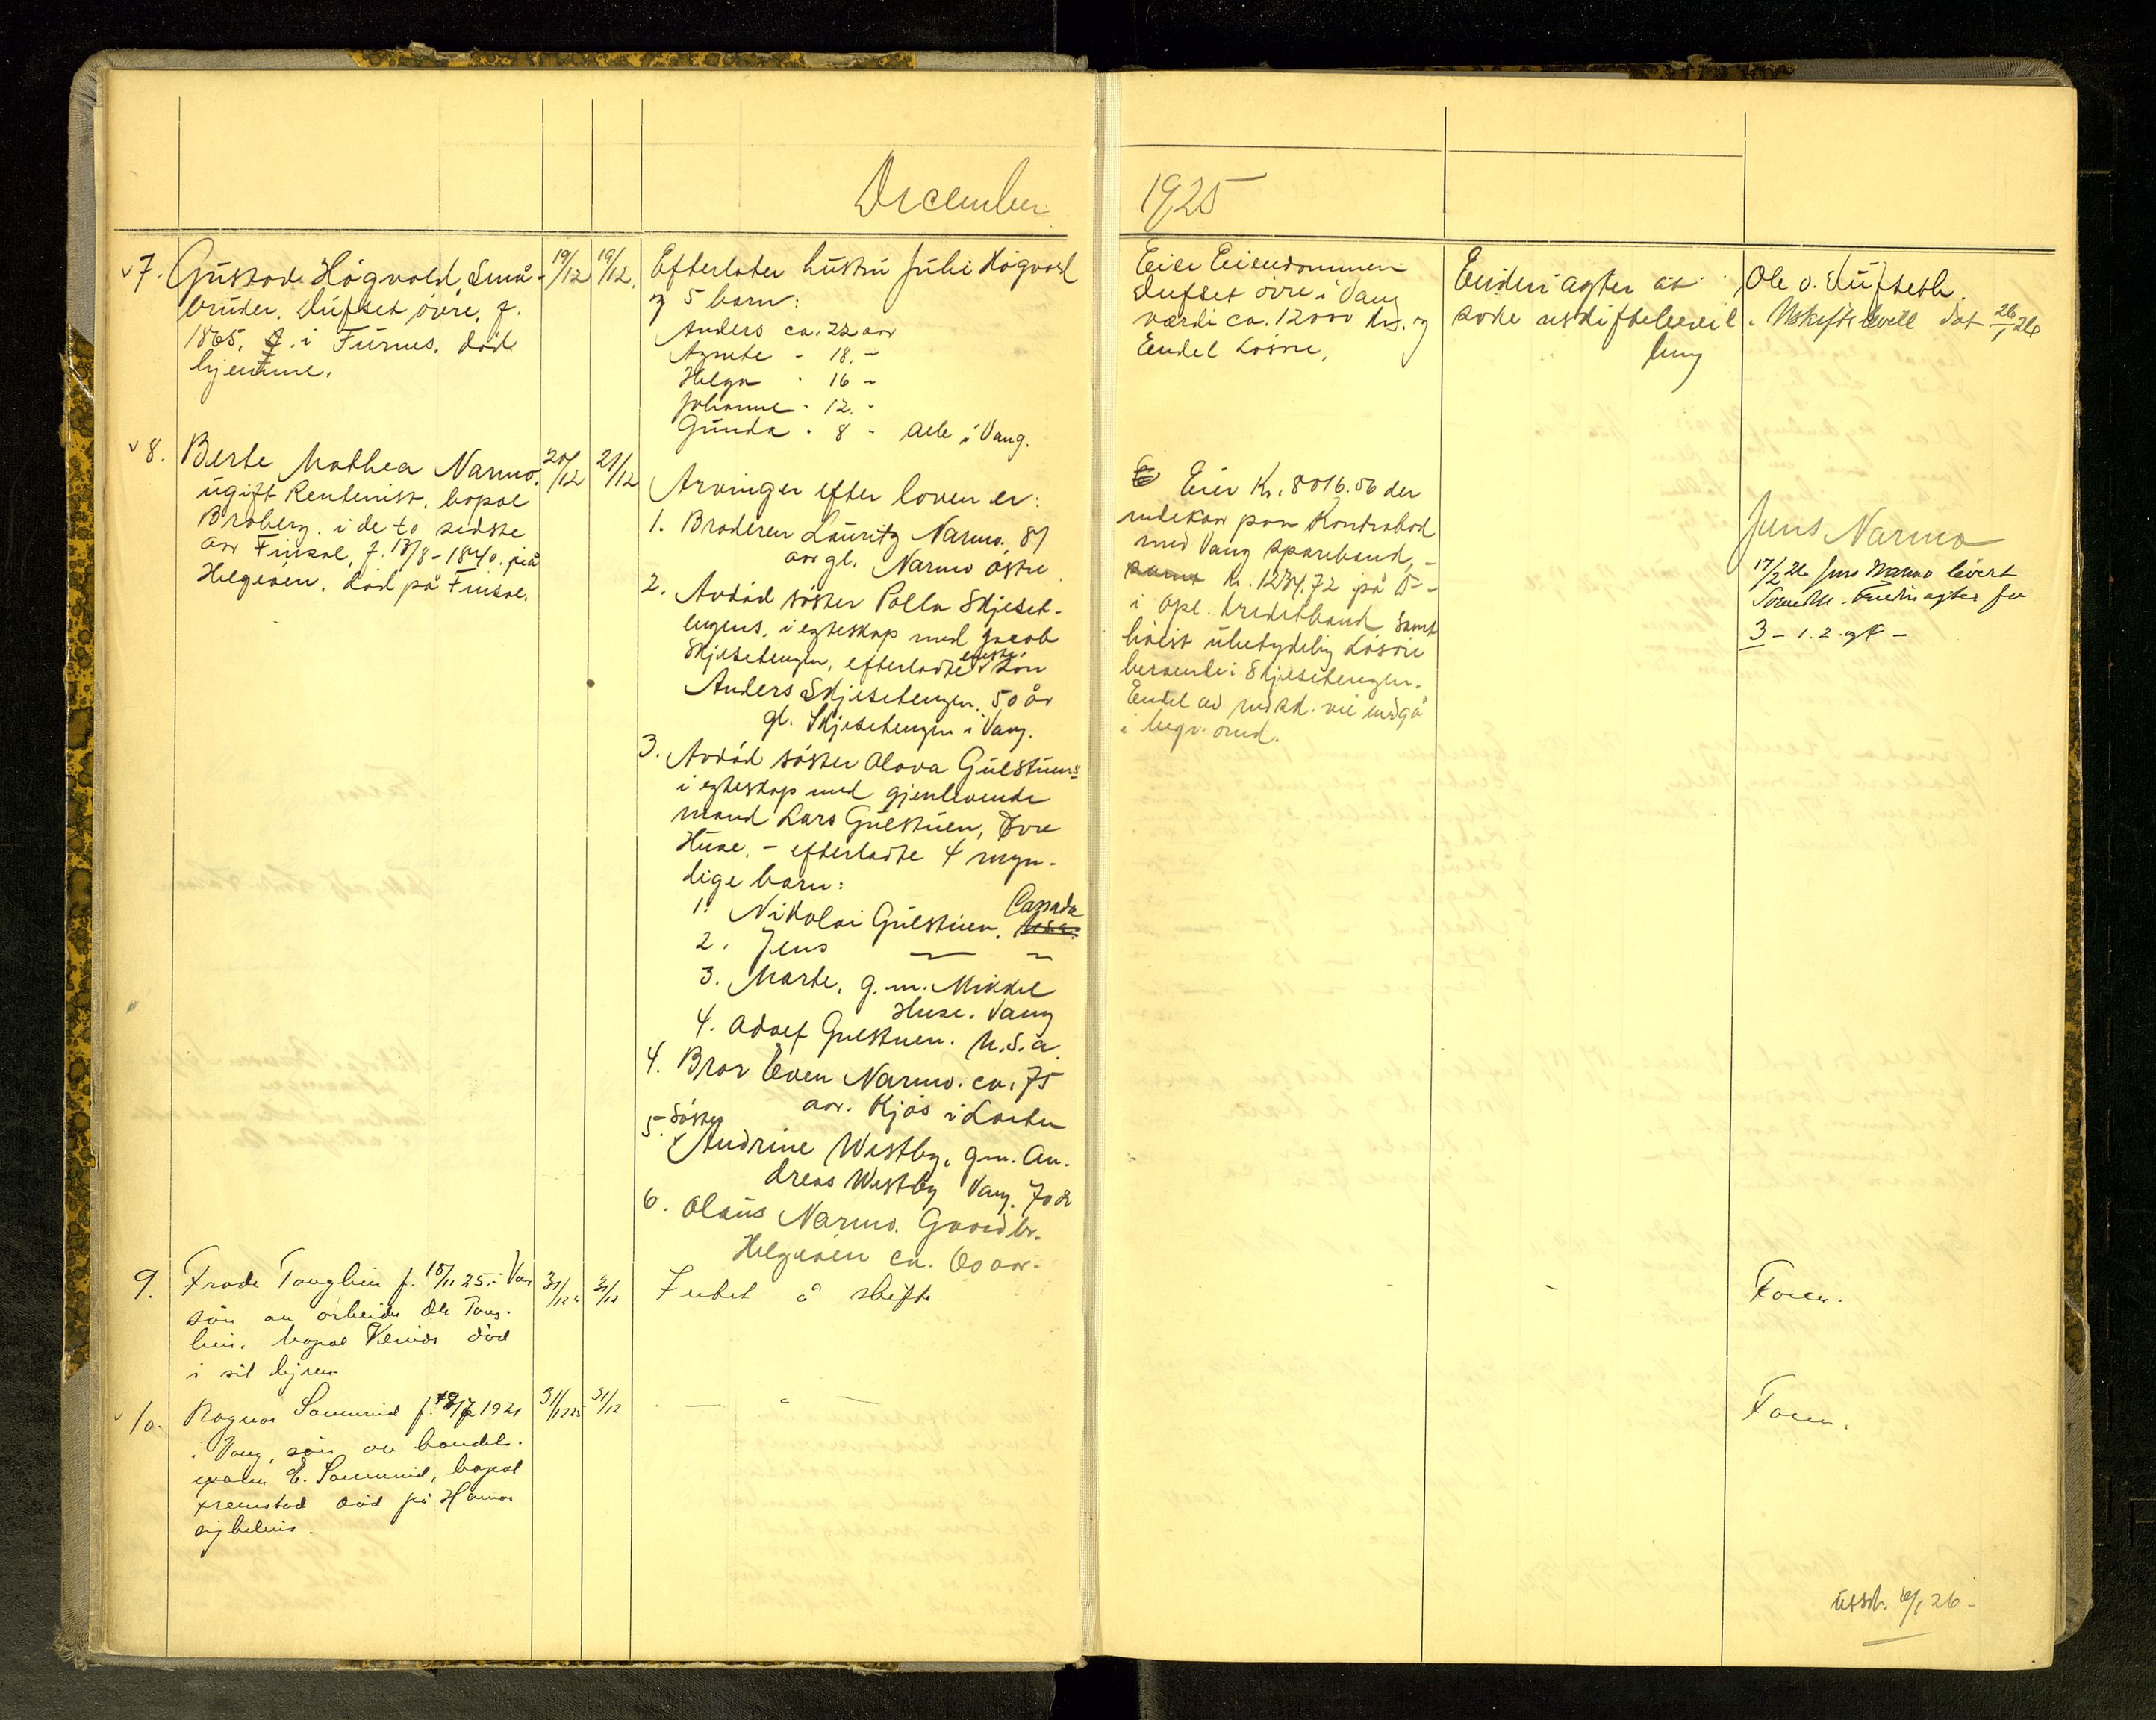 December
1925
7. Gustav Högvold, Små-
bruker, Dufset övre, f.
1865. i Furnes. död
hjemme.
19/12
19/12
Efterlater hustru Julie Högvold
og 5 barn:
Anders ca. 22 aar
Agnete - 18. -
Helga - 16 -
Johanne - 12. -
Gunda - 8 - Alle i Vang.
Eier Eiendommen
Dufset övre i Vang
værdi ca. 12000 kr. og
Endel Lösöre.
Enken agter at
sode uskiftebevil
ling
Ole O. Dufseth.
Uskiftebevill dat 26/1 26
8. Berte Mathea Narmo.
ugift Rentenist, bopæl
Broberg. i de to sidste
aar Finsal, f. 17/8-1840. på
Helgeøen. död på Finsal.
20/12
21/12
Arvinger efter loven er:
1. Broderen Lauritz Narmo. 81
aar gl. Narmo östre
2. Avdöd söster Polla Skjeset-
engens, i egteskap med Jacob
Skjesetengen, efterladte eneste Sön
Anders Skjesetengen. 50 år
gl. Skjesetengen i Vang.
3. Avdöd söster Olava Gulstuens
i egteskap med gjenlevende
mand Lars Gulstuen, Övre
Huse. - efterladte 4 myn-
dige barn:
1. Nikolai Gulstuen, Canada
U.S.A.
2. Jens — —
3. Marte, g. m. Mikkel
Huse. Vang
4. Adolf Gulstuen. U.S.A.
4. Bror Even Narmo. ca. 75
aar. Kjös i Löiten
5. Söster
Andrine Westby, gm. An-
dreas Westby Vang. 70 år
6. Olaus Narmo. Gaardbr.
Helgeøen ca. 60 aar.
Eier Kr. 8016.56 der
indekaar paa Kontrabok
med Vang sparebank, -
samt Kr. 1234.72 på D--
i Opl. Kreditbank samt
höist ubetydelig Lösöre
beroende i Skjesetengen.
Endel av indsk. vil indgå
i begr. omk.
Jens Narmo
17/2 26 Jens Narmo levert
3 - 1. 2. gf -
9. Frode Tanghein f. 15/11 25 i Vang
sön av arbeider Ole Tang-
hein. bopæl Vkmids död
i sit hjem
31/12
31/12
Intet å skifte
-
-
Faren.
10. Ragnar Sammerud f. 1921
i Vang, sön av handels-
mann E. Sammerud, bopæl
Fremstad död på Hamar
sykehus.
31/12 25
31/12
— " —
Faren.
utskr. 6/1 26 -